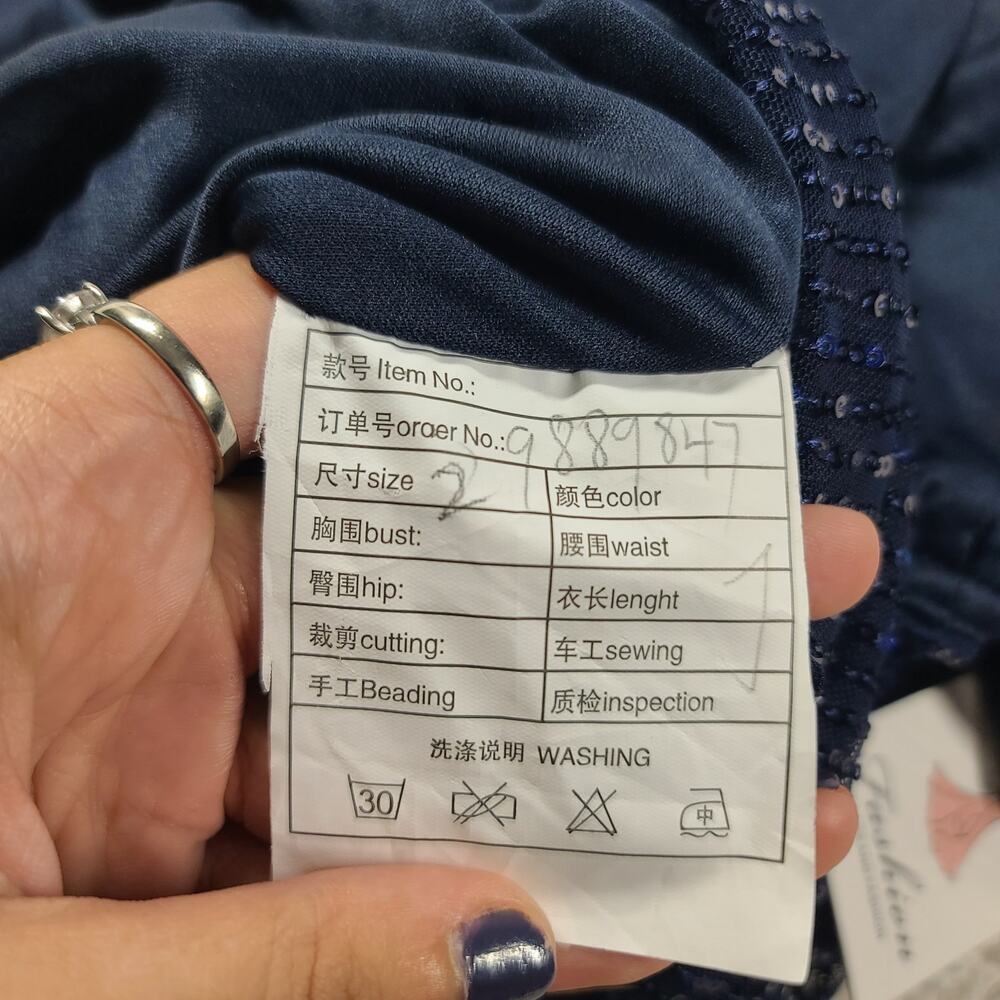 款号 Item No.:
订单号oraer No.: 9889847
尺寸size 2 颜色color
胸围bust: 腰围waist
臀围hip: 衣长lenght
裁剪cutting: 车工sewing
手工Beading 质检inspection
洗涤说明 WASHING
30 中
Fashion